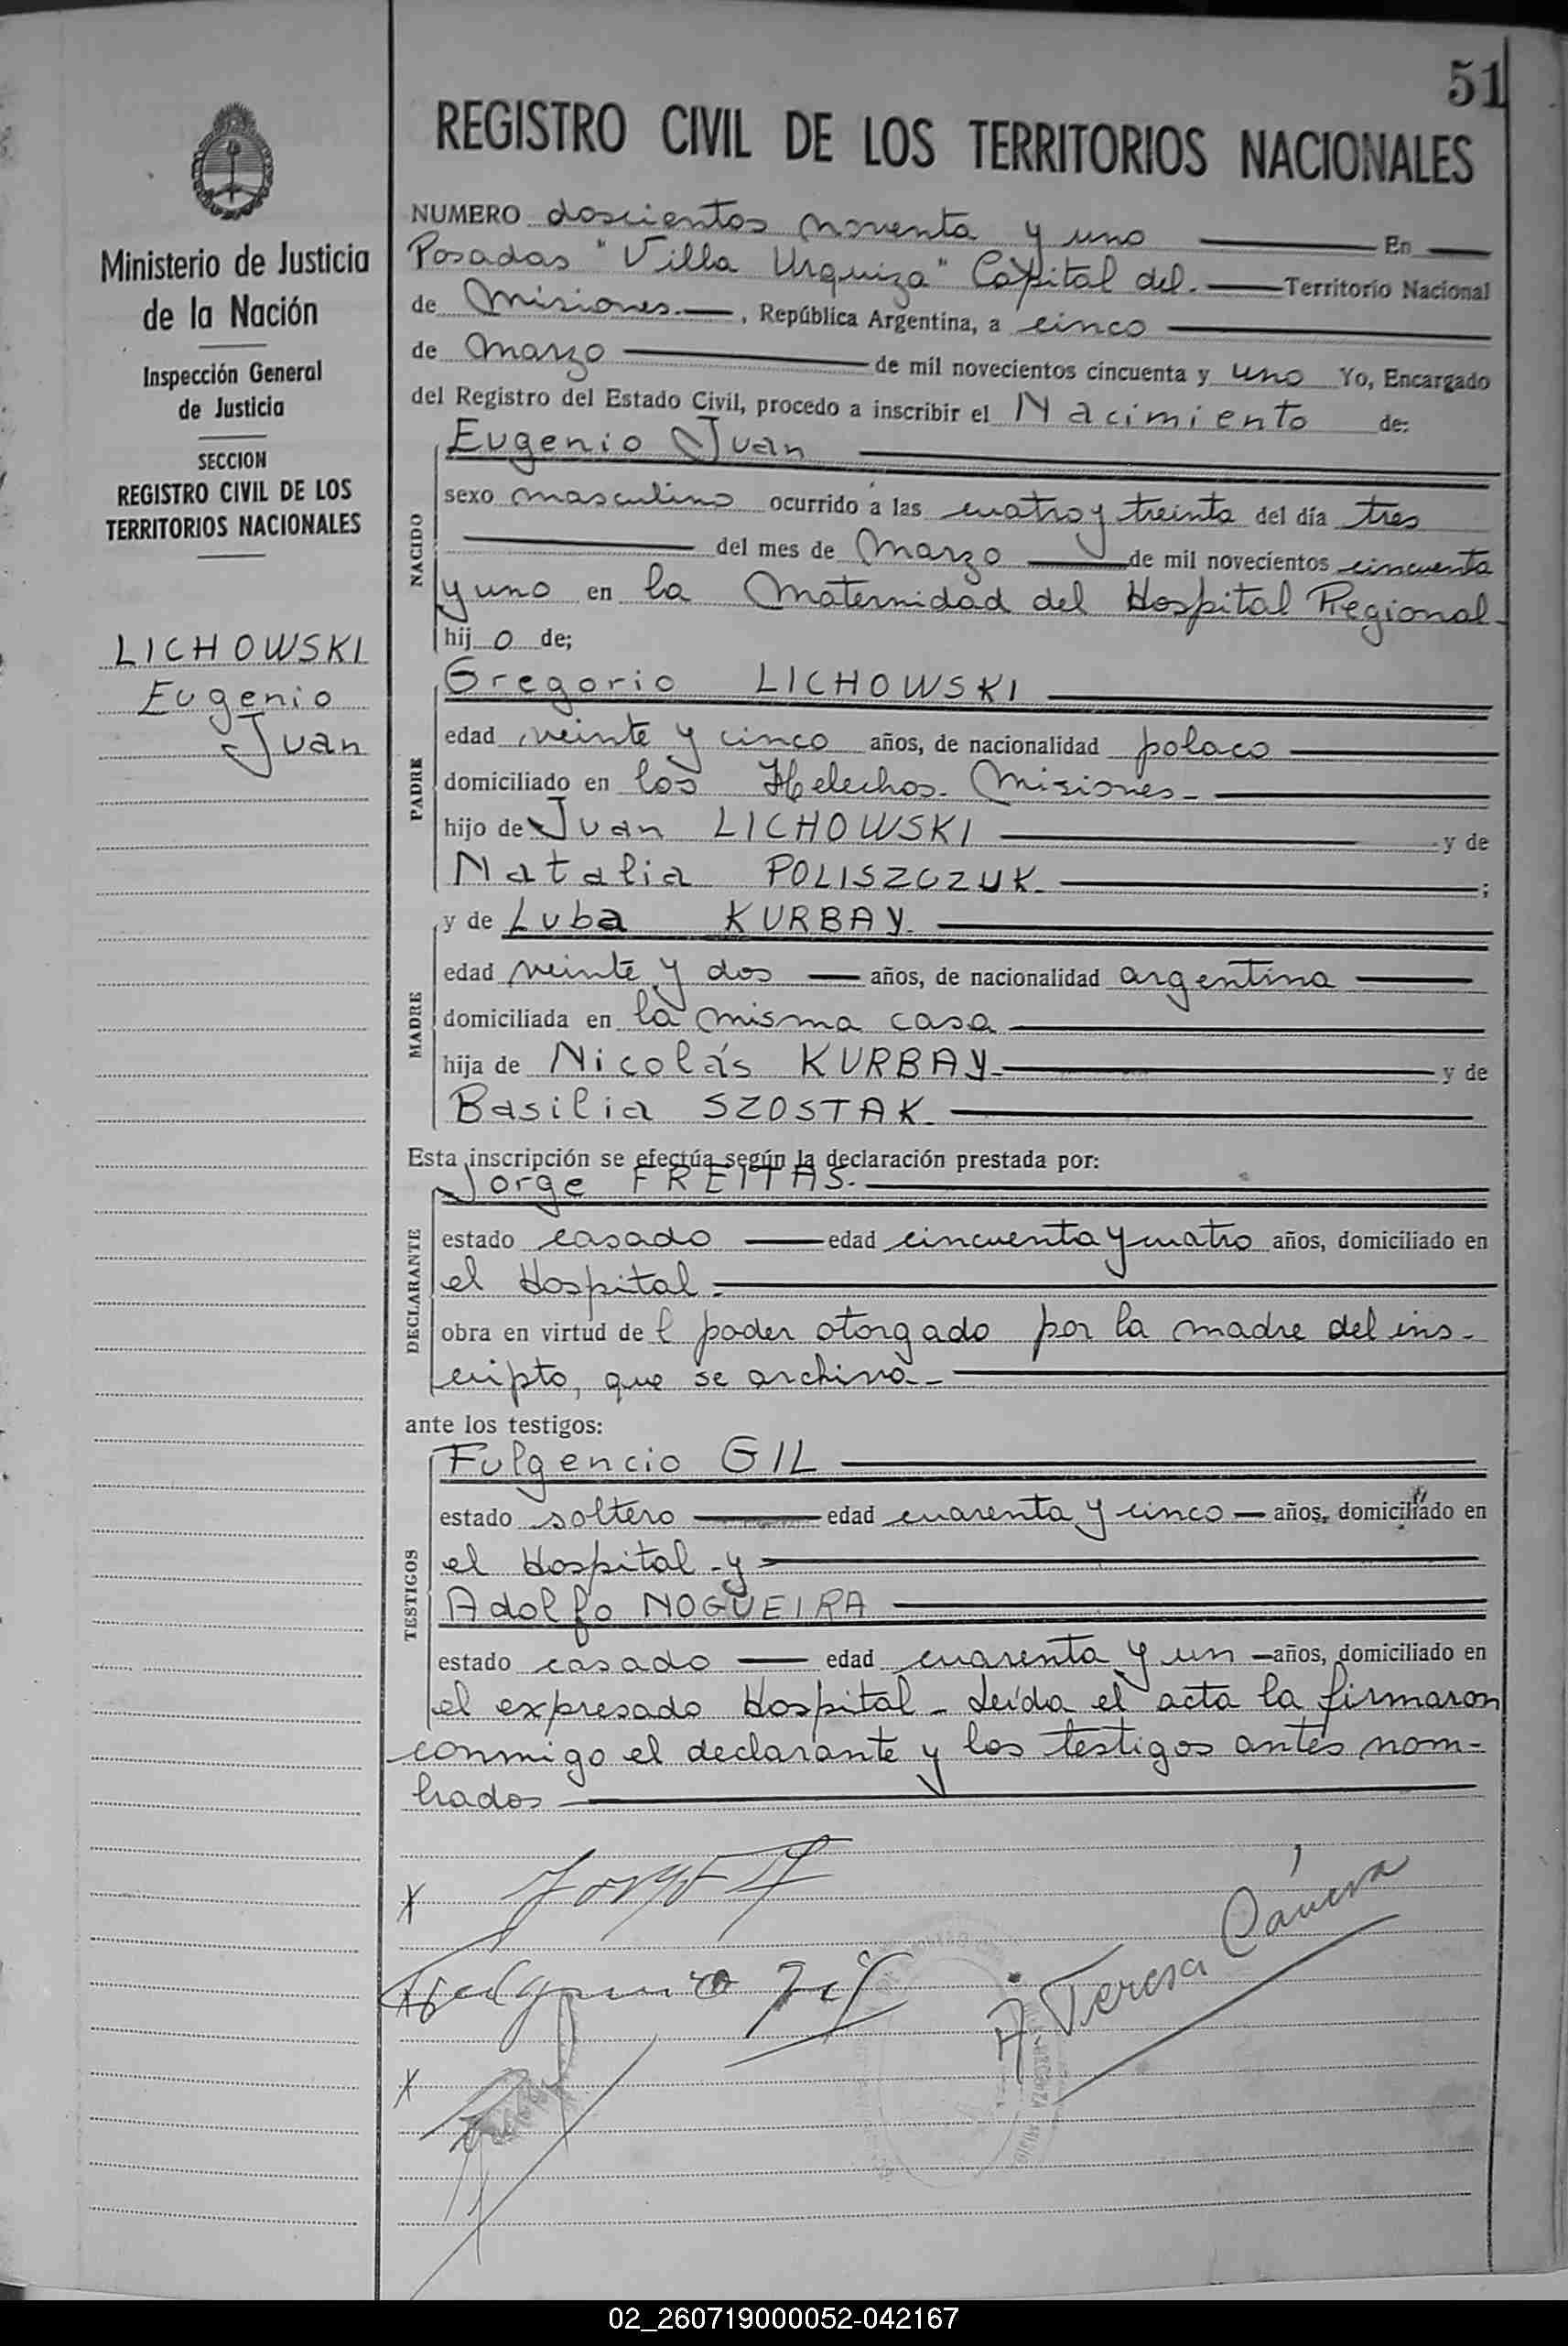 51
REGISTRO CIVIL DE LOS TERRITORIOS NACIONALES
Ministerio de Justicia
de la Nación
Inspección General
de Justicia
SECCION
REGISTRO CIVIL DE LOS
TERRITORIOS NACIONALES
LICHOWSKI
Eugenio
Juan
NUMERO doscientos noventa y uno En
Posadas "Villa Urquiza" Capital del. Territorio Nacional
de Misiones. , República Argentina, a cinco
de marzo de mil novecientos cincuenta y uno Yo, Encargado
del Registro del Estado Civil, procedo a inscribir el Nacimiento de:
NACIDO
Eugenio Juan
sexo masculino ocurrido a las cuatro y treinta del día tres
del mes de marzo de mil novecientos cincuenta
y uno en la Maternidad del Hospital Regional-
hijo de;
PADRE
Gregorio LICHOWSKI
edad veinte y cinco años, de nacionalidad polaco
domiciliado en los Helechos. Misiones-
hijo de Juan LICHOWSKI y de
Natalia POLISZCZUK. ;
MADRE
y de Luba KURBAY.
edad veinte y dos años, de nacionalidad argentina
domiciliada en la misma casa
hija de Nicolás KURBAY. y de
Basilia SZOSTAK.
Esta inscripción se efectúa según la declaración prestada por:
DECLARANTE
Jorge FREITAS.
estado casado edad cincuenta y cuatro años, domiciliado en
el Hospital.
obra en virtud del poder otorgado por la madre del ins-
cripto, que se archiva.-
ante los testigos:
TESTIGOS
Fulgencio GIL
estado soltero edad cuarenta y cinco años, domiciliado en
el Hospital - y
Adolfo NOGUEIRA
estado casado edad cuarenta y un años, domiciliado en
el expresado Hospital - Leída el acta la firmaron
conmigo el declarante y los testigos antes nom-
brados
x Jorge F
x Fulgencio Gil
A. Teresa Cánova
x
02_260719000052-042167